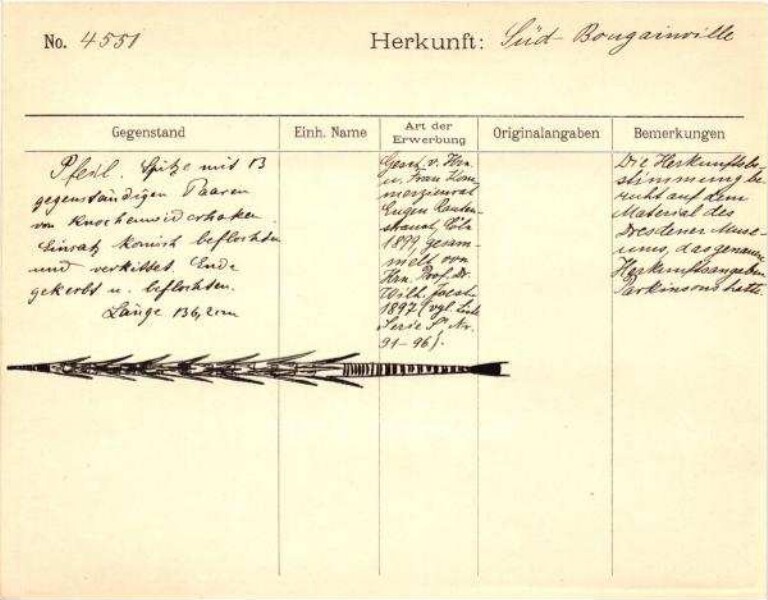 No. 4551
Herkunft: Süd-Bougainville
Gegenstand
Einh. Name
Art der
Erwerbung
Originalangaben
Bemerkungen
Pfeil. Spitze mit 13
gegenständigen Paaren
von Knochenwiderhaken.
Einsatz konisch beflochten
und verkittet. Ende
gekerbt u. beflochten.
Länge 136,2cm
Gesch. v. Hrn.
u. Frau Kom-
merzienrat
Eugen Rauten-
strauch, Cöln
1899, gesam-
melt von
Hrn. Prof. Dr.
Wilh. Joest
1897 (vgl. Liste
Serie S. Nr.
91-96).
Die Herkunftsbe-
stimmung be-
ruht auf dem
Material des
Dresdener Muse-
ums, das genauere
Herkunftsangaben
Parkinsons hatte.